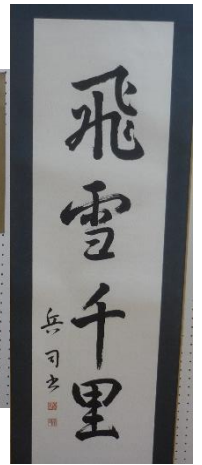 飛雪千里
兵司書